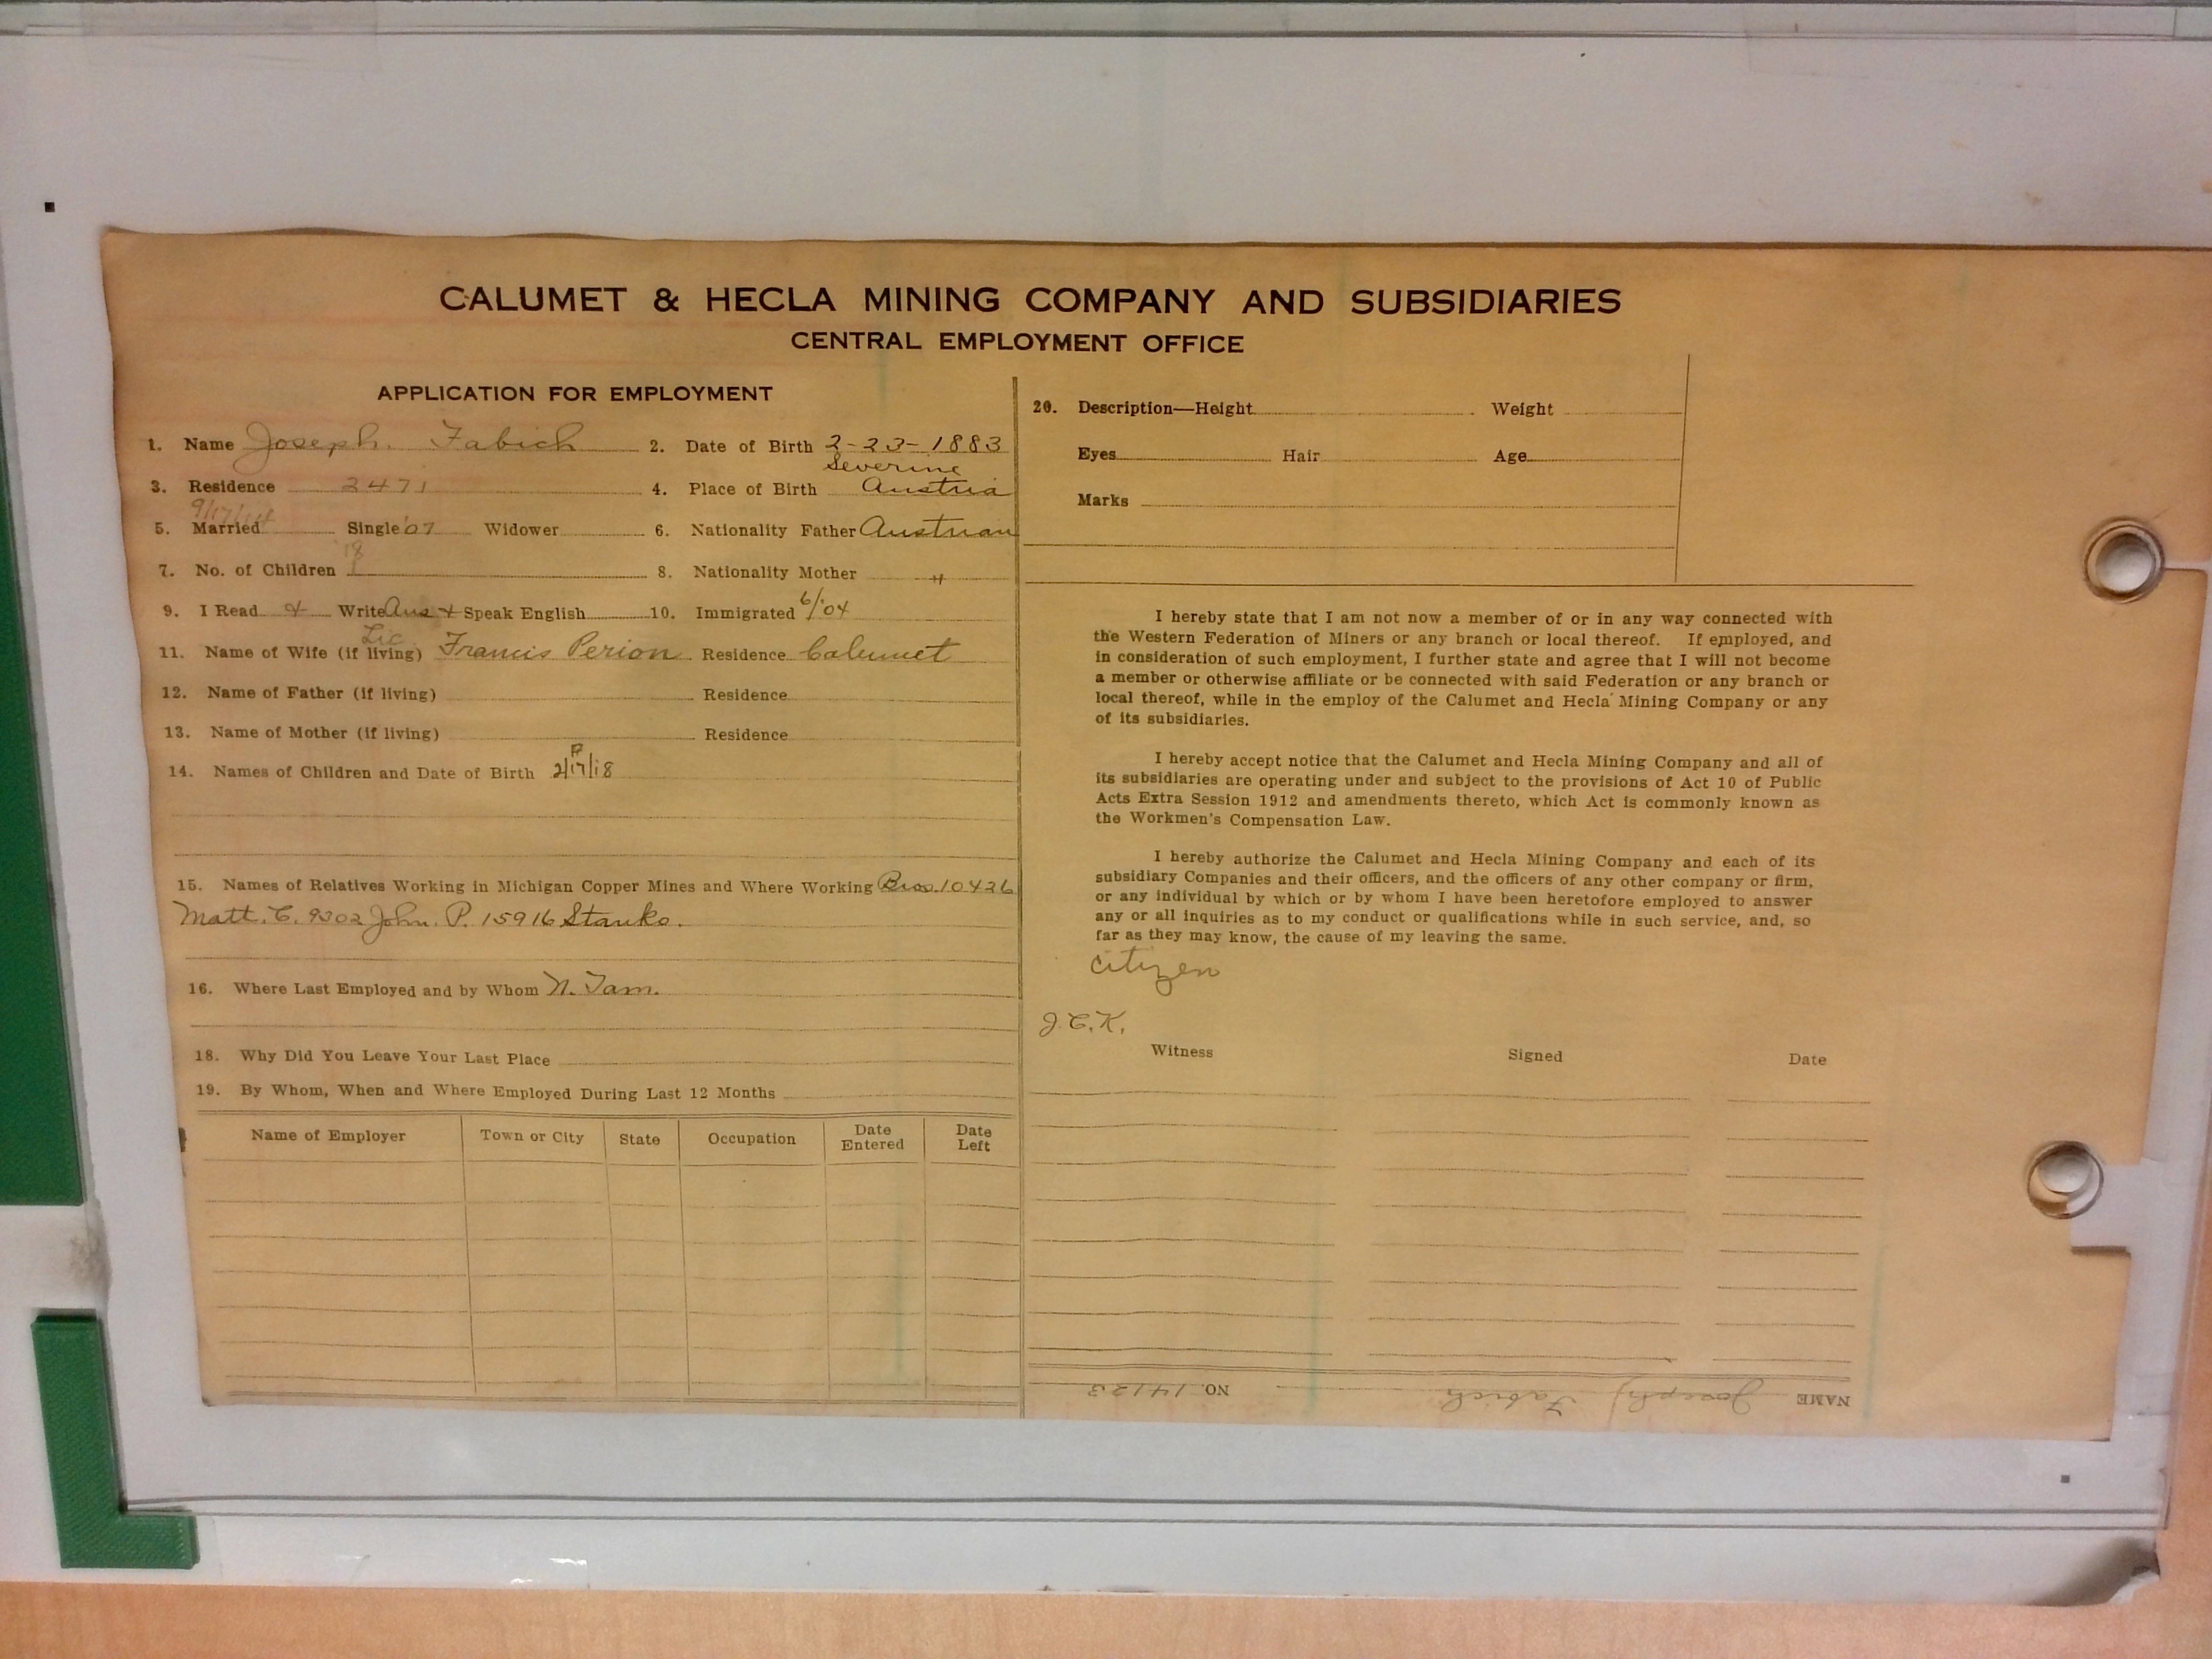 CALUMET & HECLA MINING COMPANY AND SUBSIDIARIES
CENTRAL EMPLOYMENT OFFICE
APPLICATION FOR EMPLOYMENT
1. Name Joseph. Fabich 2. Date of Birth 2-23-1883
Severine
3. Residence 2471 4. Place of Birth Austria
9/17/14
5. Married Single '07 Widower 6. Nationality Father Austrian
'18
7. No. of Children 8. Nationality Mother "
9. I Read & Write Aus & Speak English 10. Immigrated 6/'04
Lic
11. Name of Wife (if living) Francis Perion Residence Calumet
12. Name of Father (if living) Residence
13. Name of Mother (if living) Residence
14. Names of Children and Date of Birth 2/17/18
15. Names of Relatives Working in Michigan Copper Mines and Where Working Bros. 10426
Matt. C. 9302 John. P. 15916 Stanko.
16. Where Last Employed and by Whom N. Tam.
18. Why Did You Leave Your Last Place
19. By Whom, When and Where Employed During Last 12 Months
Name of Employer Town or City State Occupation Date Entered Date Left
20. Description—Height Weight
Eyes Hair Age
Marks
I hereby state that I am not now a member of or in any way connected with
the Western Federation of Miners or any branch or local thereof. If employed, and
in consideration of such employment, I further state and agree that I will not become
a member or otherwise affiliate or be connected with said Federation or any branch or
local thereof, while in the employ of the Calumet and Hecla Mining Company or any
of its subsidiaries.
I hereby accept notice that the Calumet and Hecla Mining Company and all of
its subsidiaries are operating under and subject to the provisions of Act 10 of Public
Acts Extra Session 1912 and amendments thereto, which Act is commonly known as
the Workmen's Compensation Law.
I hereby authorize the Calumet and Hecla Mining Company and each of its
subsidiary Companies and their officers, and the officers of any other company or firm,
or any individual by which or by whom I have been heretofore employed to answer
any or all inquiries as to my conduct or qualifications while in such service, and, so
far as they may know, the cause of my leaving the same.
citizen
J.C.K.
Witness Signed Date
NAME Joseph Fabich NO. 14123